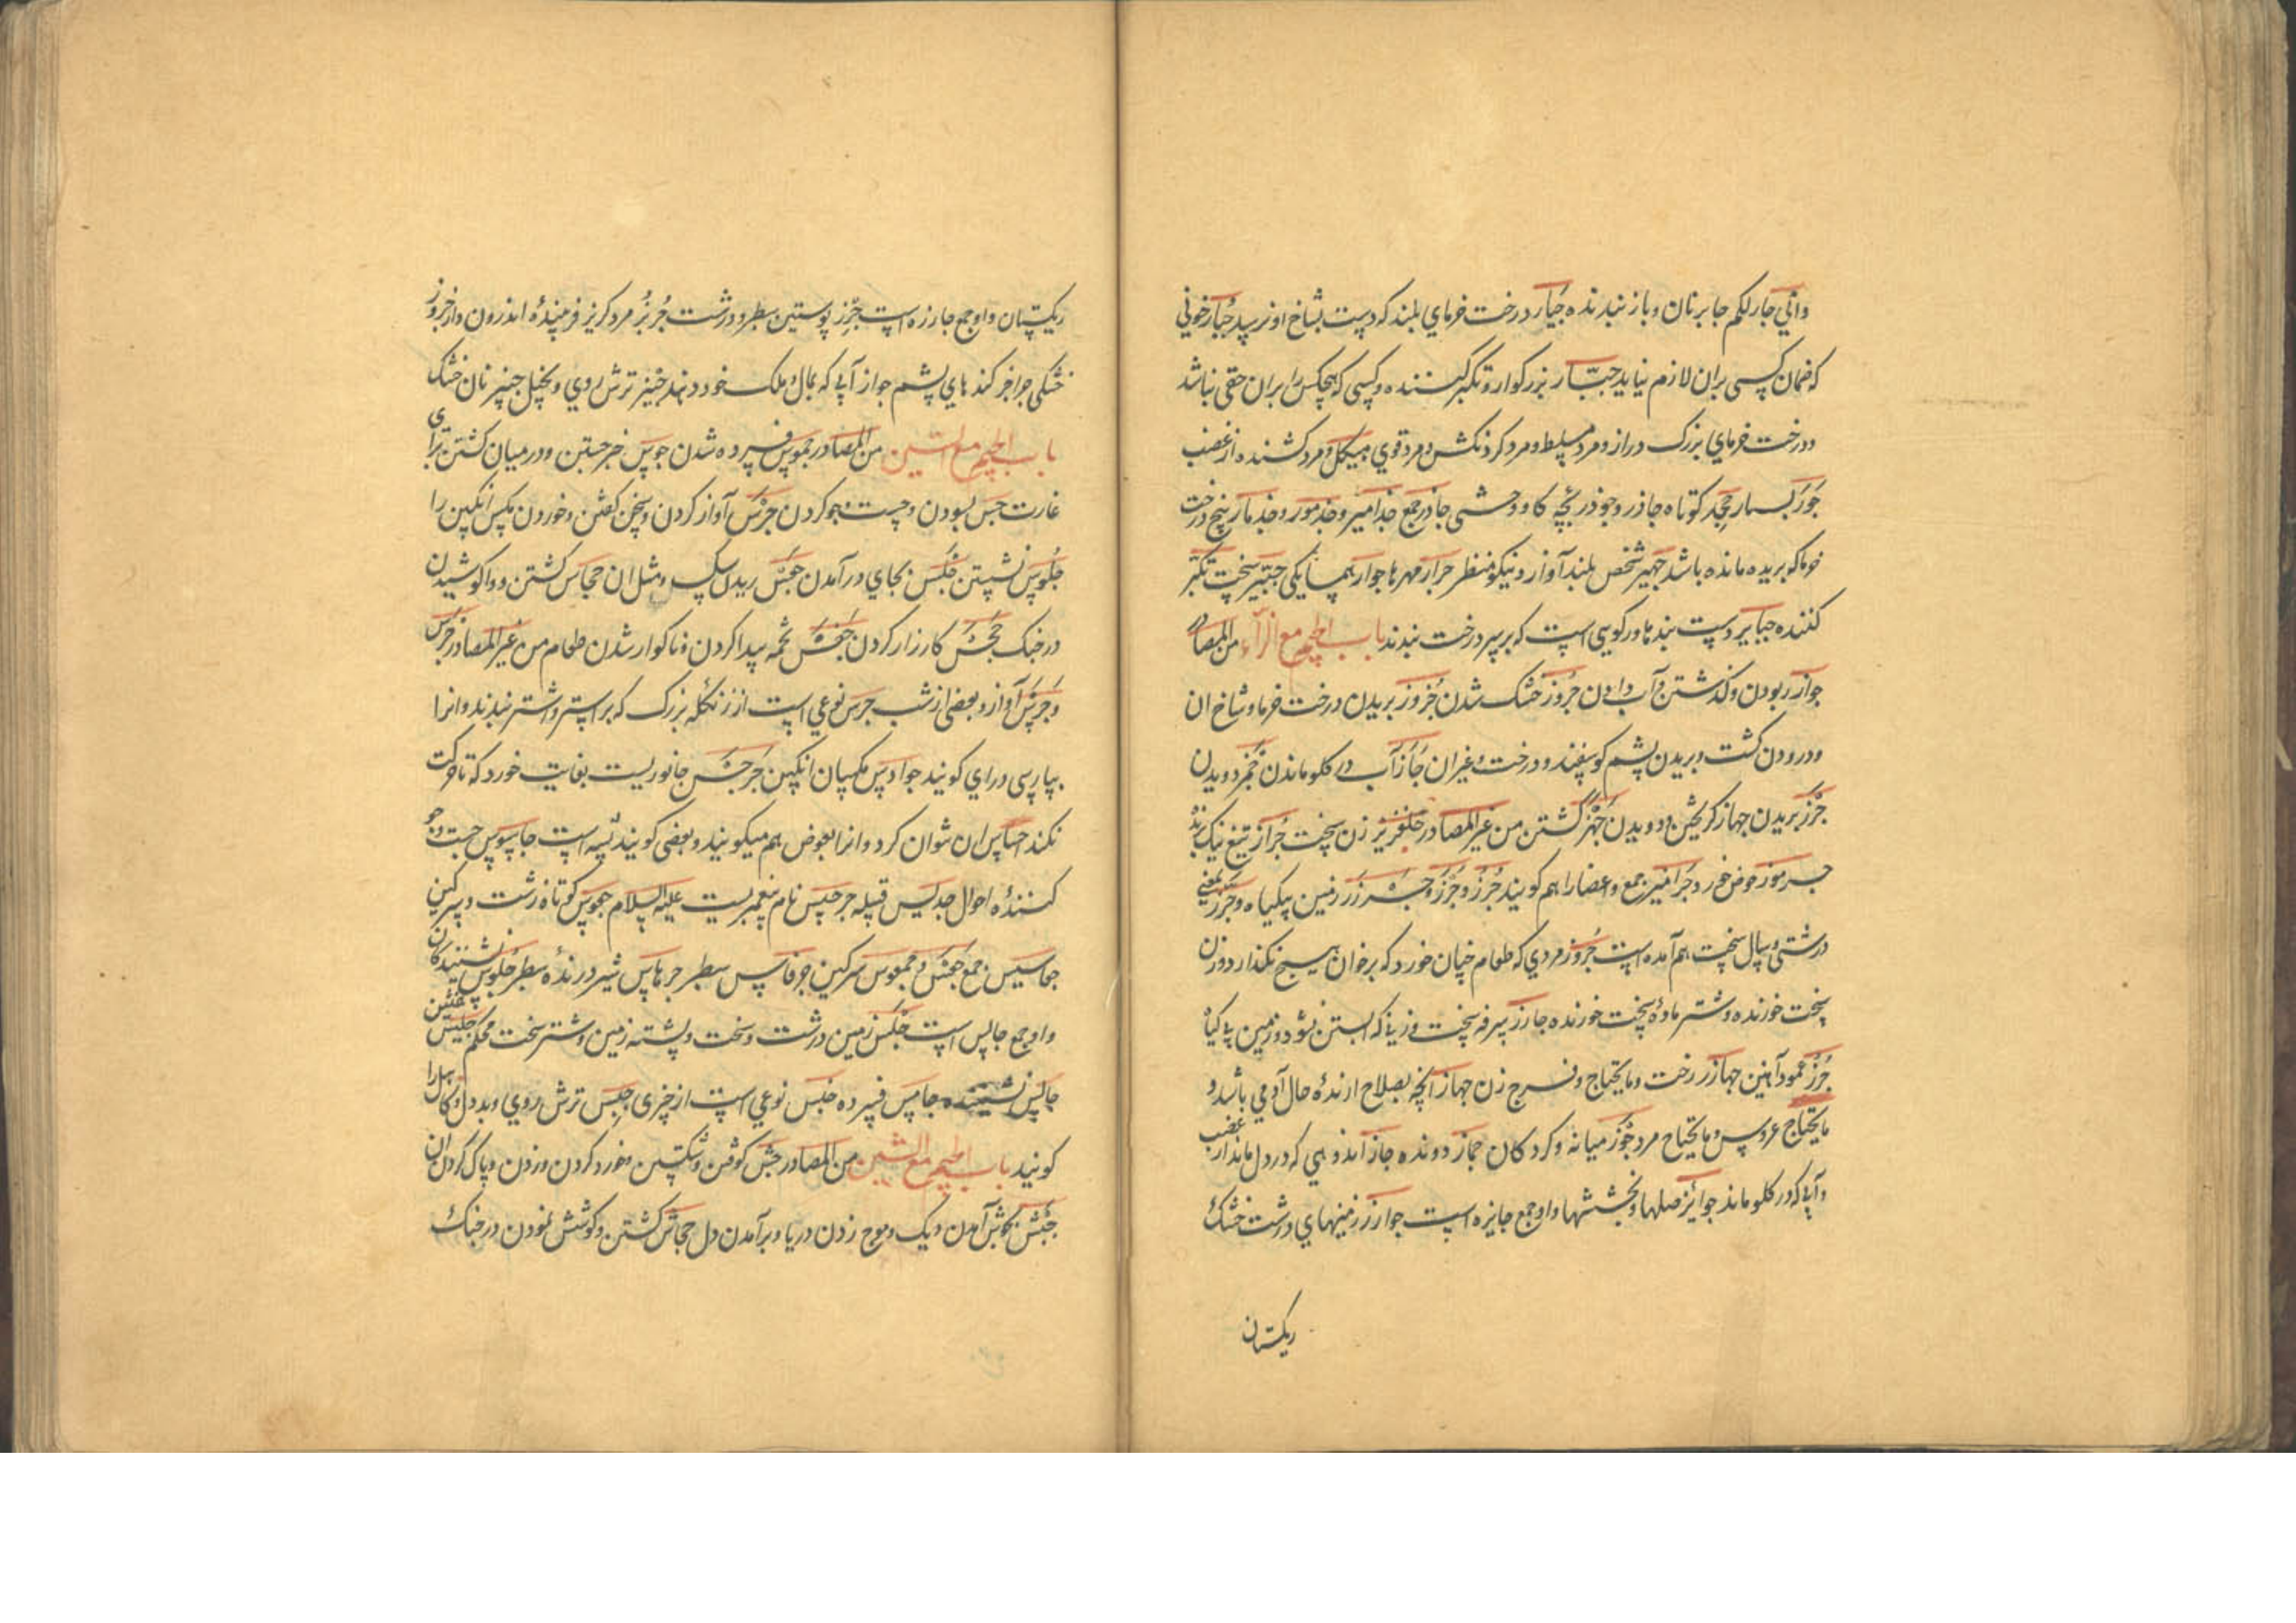 وانی جار لکم جابر نان و باز بندنده جبار درخت خرمای بلند که دست بشاخ او نرسد جبار خونی
که ضمان کسی بران لازم نیاید جبّار بزرکوار و تکبر کننده و کسی که هیچکس را بران حقی نباشد
ودرخت خرمای بزرک و دراز و مرد مسلط و مرد کردنکش و مرد قوی هیکل و مرد کشنده از غضب
جور بسیار جحدر کوتاه جاذر و جوذر بچه کاو وحشی جاذر جمع جذامیر و جذمور و جذمار بیخ درخت
خرما که بریده مانده باشد جهیر شخص بلند آواز و نیکو منظر جزار مهرها جوار همسایکی جبّیر سخت تکبر
کننده جبایر دست بندها و رکویی است که بر سر درخت بندند باب الجیم مع الزاء من المصادر
جواز ربودن و کذشتن و آب دادن جروز خشک شدن جزوز بریدن درخت خرما و شاخ ان
ودرودن کشت و بریدن پشم کوسفند و درخت و غیر ان جاز آب در کلو ماندن جمز دویدن
جرز بریدن جهاز کریختن و دویدن جهز کشتن من غیر المصادر جلفزیز زن سخت جراز تیغ نیک برنده
جرموز حوض خرد و جرامیز جمع و اعضا را هم کویند جرز و جرز و جرز زمین بیکیاه و جرز بمعنی
درشتی و سال سخت هم آمده است جروز مردی که طعام خپان خورد که بر خوان هیچ نکذارد و زن
سخت خورنده و شتر ماده سخت خورنده جارز سرفه سخت و زنی که ابستن نشود و زمین بی کیاه
جرز عمود آهنین جهاز رخت و ما یحتاج و فرج زن جهاز انچه بصلاح ارنده حال آدمی باشد و
ما یحتاج عروس و ما یحتاج مرد جوز میانه و کردکان جماز دونده جاز اندوهی که در دل ماند از غضب
و آبی که در کلو ماند جوایز صلها و بخششها و او جمع جایزه است جوارز زمینهای درشت خشک
ریکستان
ریکستان و او جمع جارزه است جرز پوستین سطبر و درشت جربز مرد کربز فریبنده اندرون دار جروز
خشکی جزاجز کندهای پشم جواز آبی که بمال و ملک خود دهند جبز ترش روی و بخیل جبیز نان خشک
باب الجیم مع السین من المصادر جموس فسرده شدن جوس خبر جستن و در میان کشتن برای
غارت جس بسودن و جست و جو کردن جرس آواز کردن و سخن کفتن و خوردن مکس انکبین را
جلوس نشستن جلس بجای در آمدن جعس ریدن سک و مثل ان جحاس کشتن و واکوشیدن
در جنک جحس کارزار کردن جفس تخمه پیدا کردن و ناکوار شدن طعام من غیر المصادر جرس
و جرس آواز و بعضی از شب جرس نوعی است از زنکله بزرک که بر استر و اشتر بندند و انرا
بپارسی درای کویند جوارس مکسان انکبین جرجس جانوریست بغایت خورد که تا حرکت
نکند احساس ان نتوان کرد و انرا بعوض هم میکویند و بعضی کویند پشه است جاسوس جست و جو
کننده احوال جدیس قبیله جرجیس نام پیغمبریست علیه السلام جعموس کوتاه زشت و سرکین
جعامیس جمع جعس و جعموس سرکین جرفاس سطبر جرهاس شیر درنده سطبر جلوس نشینندکان
و او جمع جالس است جلس زمین درشت و سخت و پشته زمین و شتر سخت محکم جلیس همنشین
جالس نشیننده جامس فسرده جنس نوعی است از چیزی جبس ترش روی و بد دل و کاسل را
کویند باب الجیم مع الشین من المصادر جش کوفتن و شکستن و خورد کردن و زدن و پاک کردن ان
جیش بجوش آمدن دیک و موج زدن دریا و بر آمدن دل جحاش کشتن و کوشش نمودن در جنک